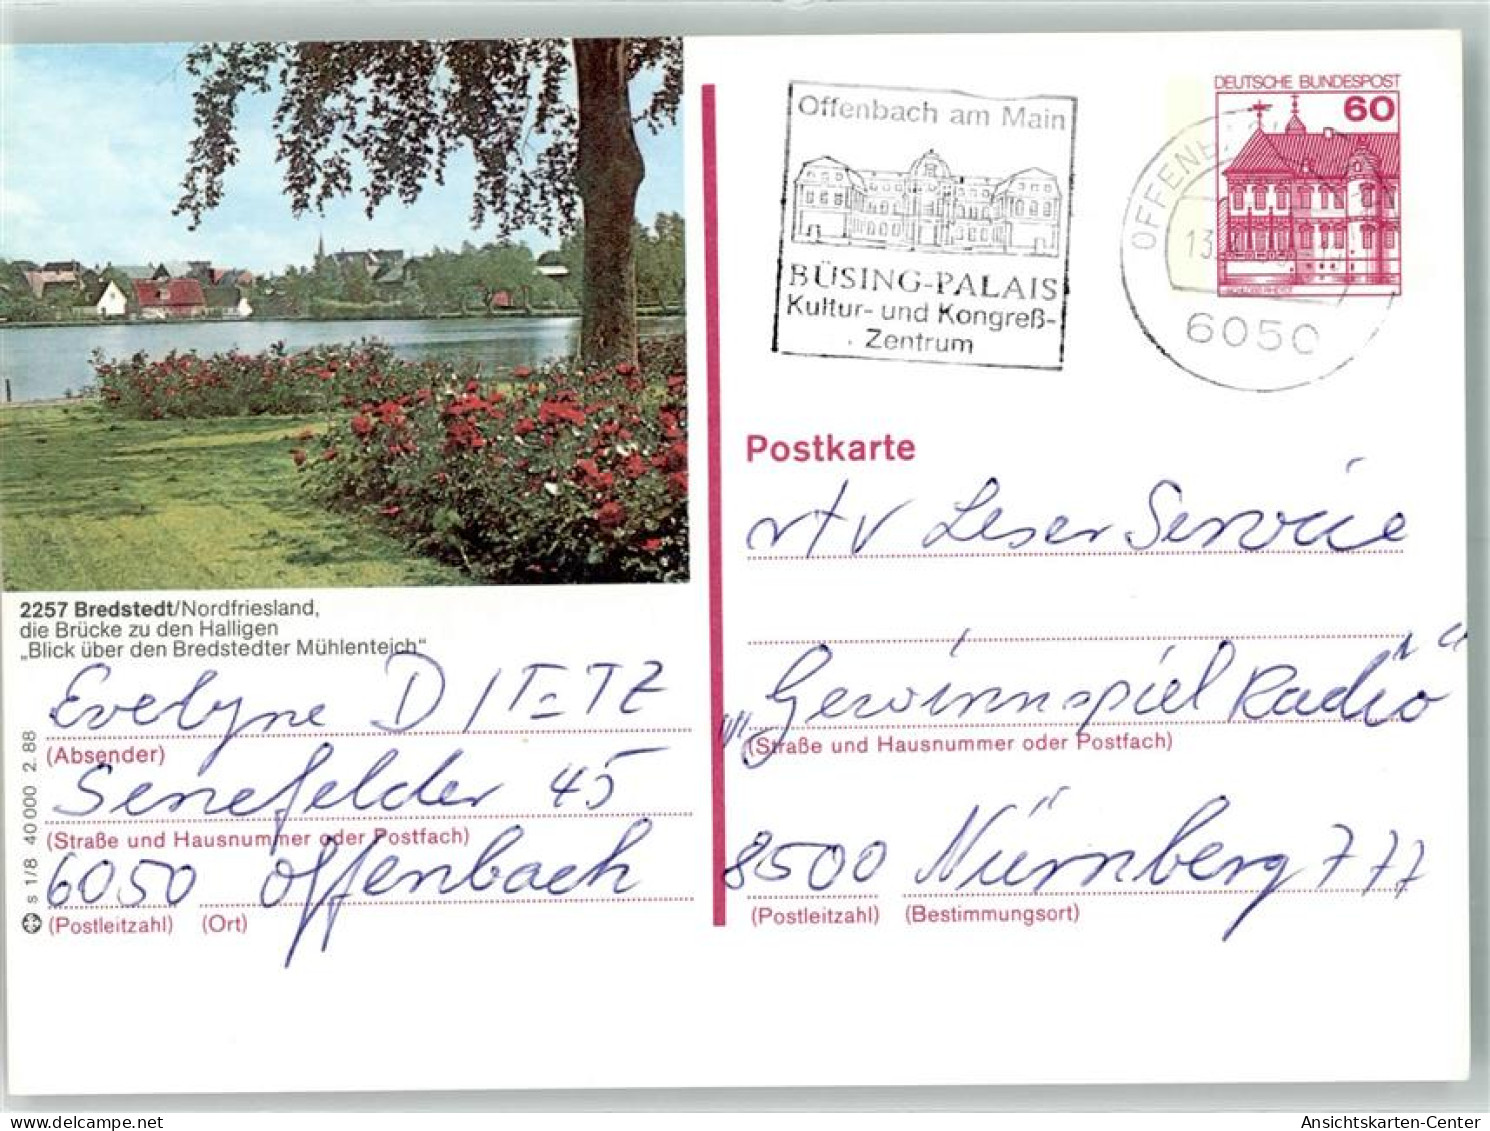 Offenbach am Main
BÜSING-PALAIS
Kultur- und Kongreß-
Zentrum
6050
DEUTSCHE BUNDESPOST
60
2257 Bredstedt/Nordfriesland,
die Brücke zu den Halligen
„Blick über den Bredstedter Mühlenteich“
Evelyne DIETZ
(Absender)
Senefelder 45
(Straße und Hausnummer oder Postfach)
6050 Offenbach
(Postleitzahl) (Ort)
s 1/8 40 000 2. 88
Postkarte
rtv Leser Service
„Gewinnspiel Radio“
(Straße und Hausnummer oder Postfach)
8500 Nürnberg 777
(Postleitzahl) (Bestimmungsort)
Ansichtskarten-Center